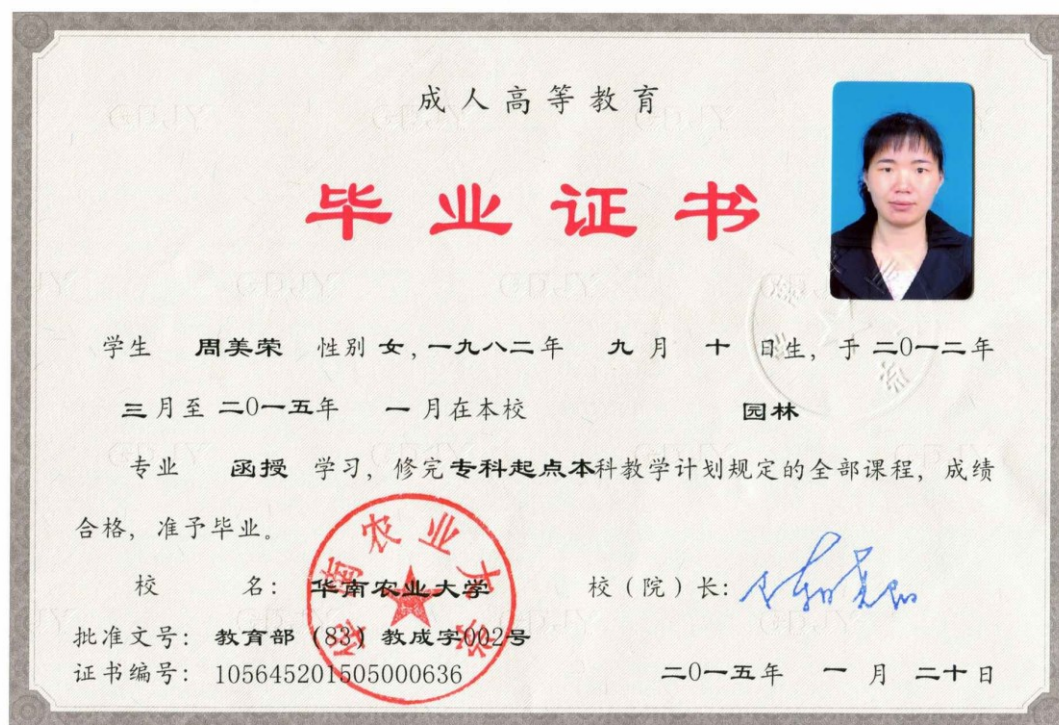 成人高等教育
毕业证书
学生 周美荣 性别 女，一九八二年 九 月 十 日生，于 二0一二年
三月至 二0一五年 一 月在本校 园林
专业 函授 学习，修完专科起点本科教学计划规定的全部课程，成绩
合格，准予毕业。
校 名：华南农业大学 校（院）长：
批准文号：教育部（83）教成字002号
证书编号：105645201505000636 二0一五年 一 月 二十日
华南农业大学
GDJY